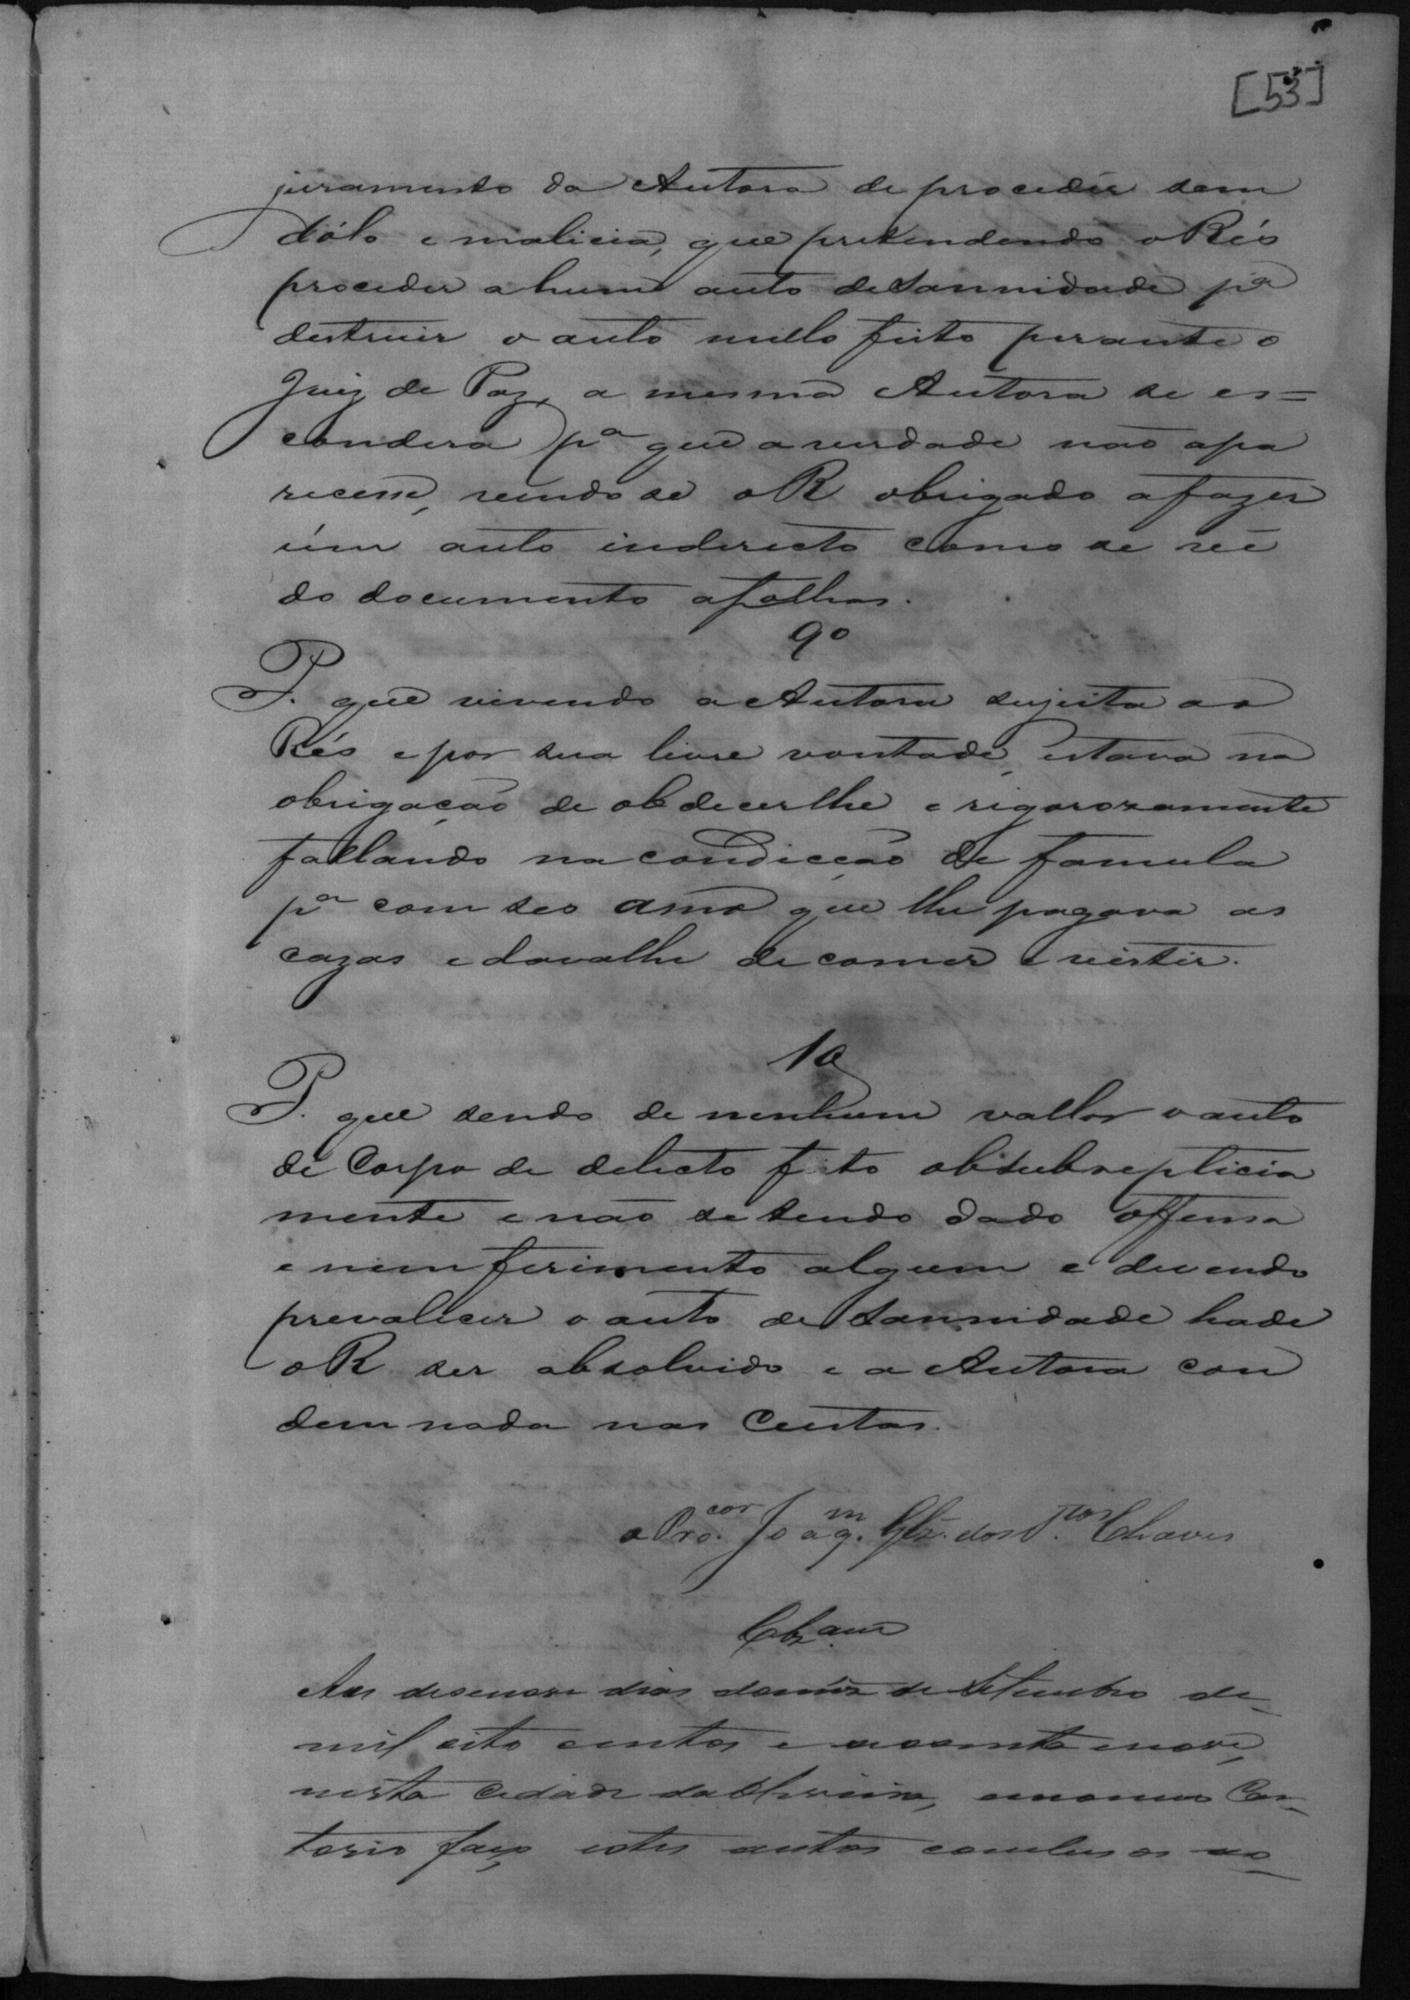 [53]
juramento da Autora de proceder sem
dólo e malicia, que pretendendo o Réo
proceder a hum auto de Sannidade pª
destruir o auto nullo feito perante o
Juiz de Paz, a mesma Autora se es=
condera pª que a verdade não apa
recesse, vendo se o R obrigado a fazer
úm auto indirecto como se vê
do documento a folhas.
9º
P. que vivendo a Autora sujeita ao
Réo e por sua livre vontade, estava na
obrigação de obdecerlhe e rigorozamente
fallando na condicção de famula
pª com seo amo que lhe pagava as
cazas e davalhe de comer e vestir.
10
P. que sendo de nenhum vallor o auto
de Corpo de delicto feito obsubrepticia
mente e não se tendo dado offensa
e nem ferimento algum e devendo
prevalecer o auto de Sannidade hade
o R ser absolvido e a Autora con
demnada nas Custas.
o Procor. Joaqm. Glz. dos Stos. Chaves
Clzam
Aos desenove dias do mes de Setembro de
mil oito centos e nove,
nesta Cidade da em meo Car-
torio faço estes autos conclusos ao